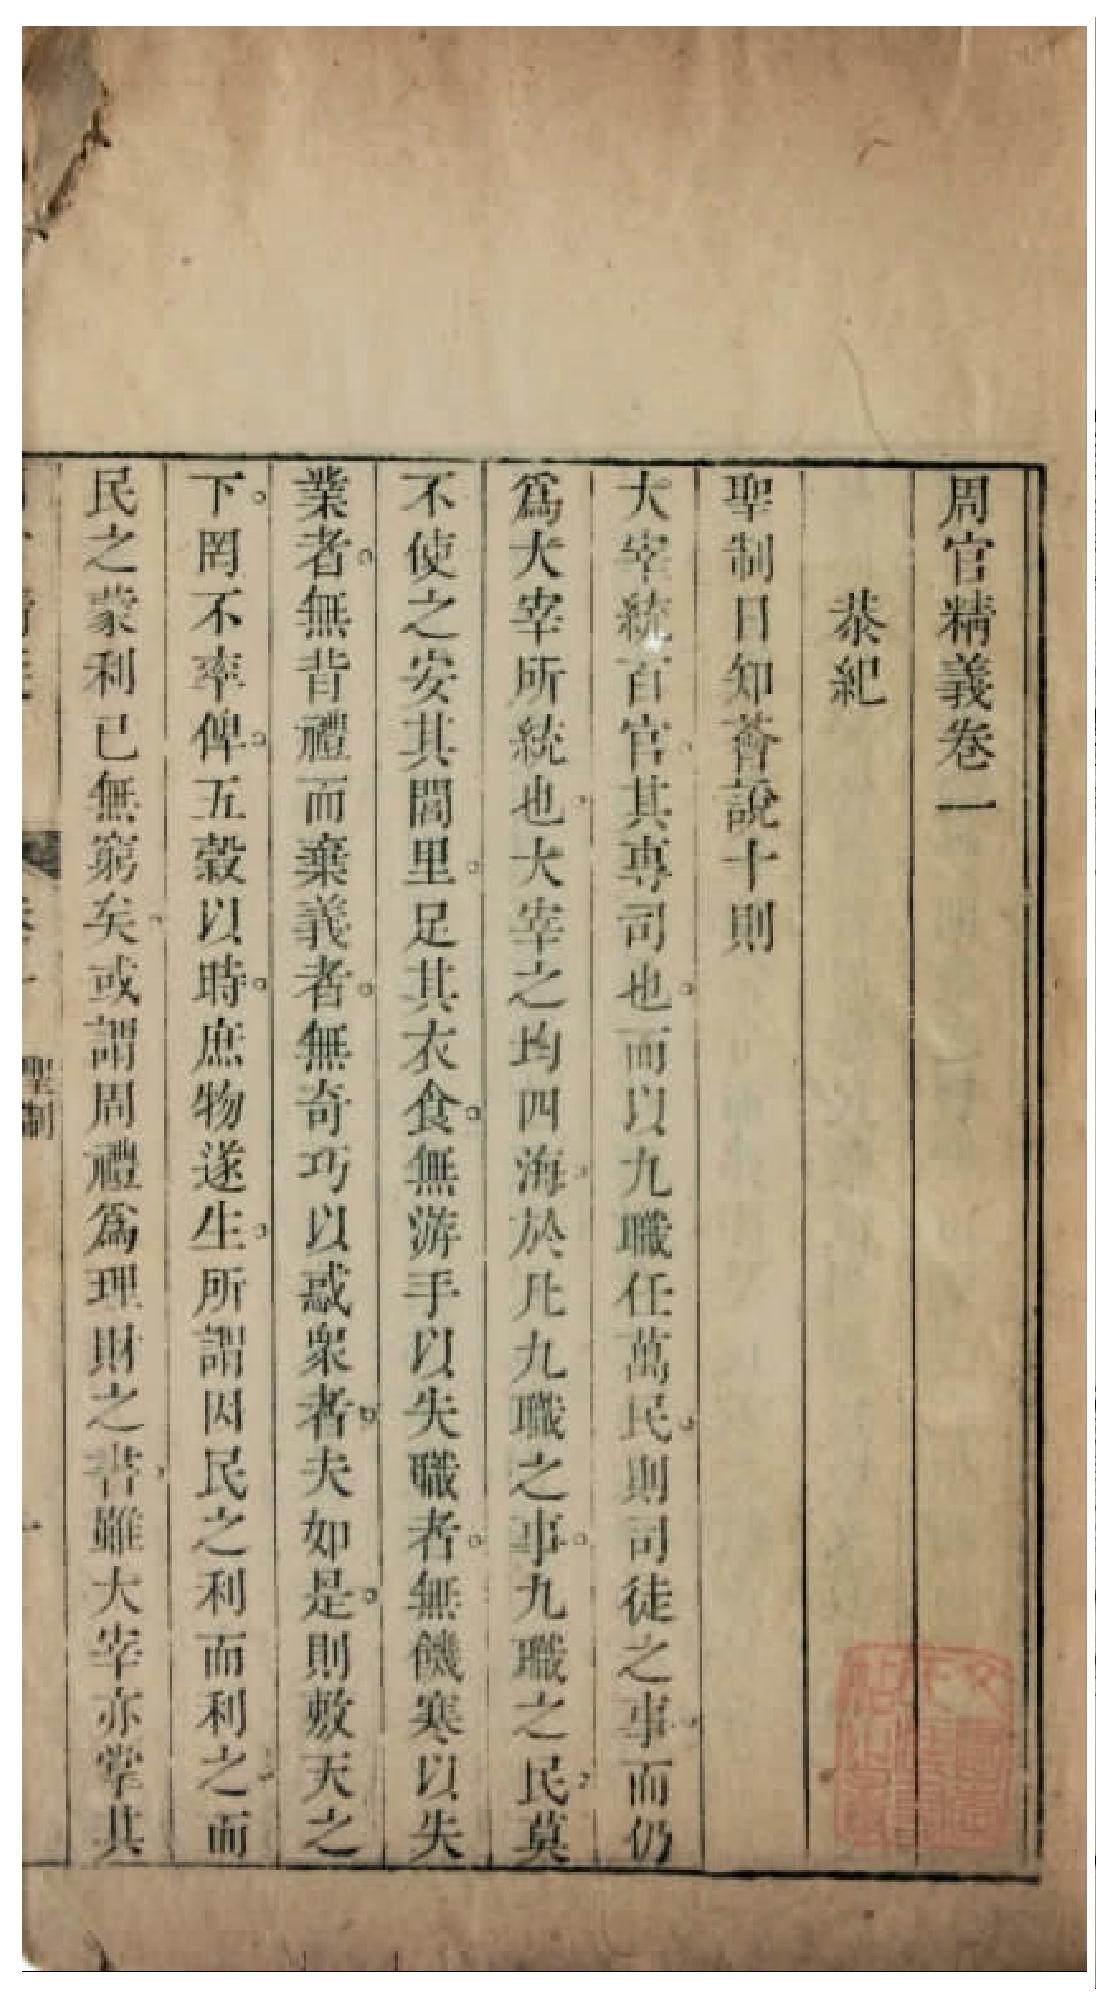 周官精義卷一
恭紀
聖制日知薈說十則
大宰統百官其專司也而以九職任萬民則司徒之事而仍
爲大宰所統也大宰之均四海於凡九職之事九職之民莫
不使之安其閭里足其衣食無游手以失職者無饑寒以失
業者無背禮而棄義者無奇巧以惑衆者夫如是則敷天之
下罔不率俾五穀以時庶物遂生所謂因民之利而利之而
民之蒙利已無窮矣或謂周禮爲理財之書雖大宰亦掌其
聖制